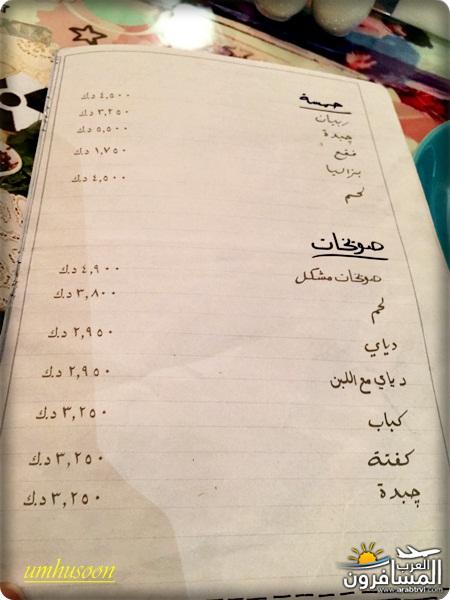 حمسة
ربيان ٤,٥٠٠ د.ك
چبدة ٣,٢٥٠ د.ك
فقع ٥,٥٠٠ د.ك
بزاليا ١,٧٥٠ د.ك
لحم ٤,٥٠٠ د.ك
صوخات
صوخات مشكل ٤,٩٠٠ د.ك
لحم ٣,٨٠٠ د.ك
دياي ٢,٩٥٠ د.ك
دياي مع اللبن ٢,٩٥٠ د.ك
كباب ٣,٢٥٠ د.ك
كفتة ٣,٢٥٠ د.ك
چبدة ٣,٢٥٠ د.ك
umhusoon
العرب
المسافرون
www.arabtrvl.com